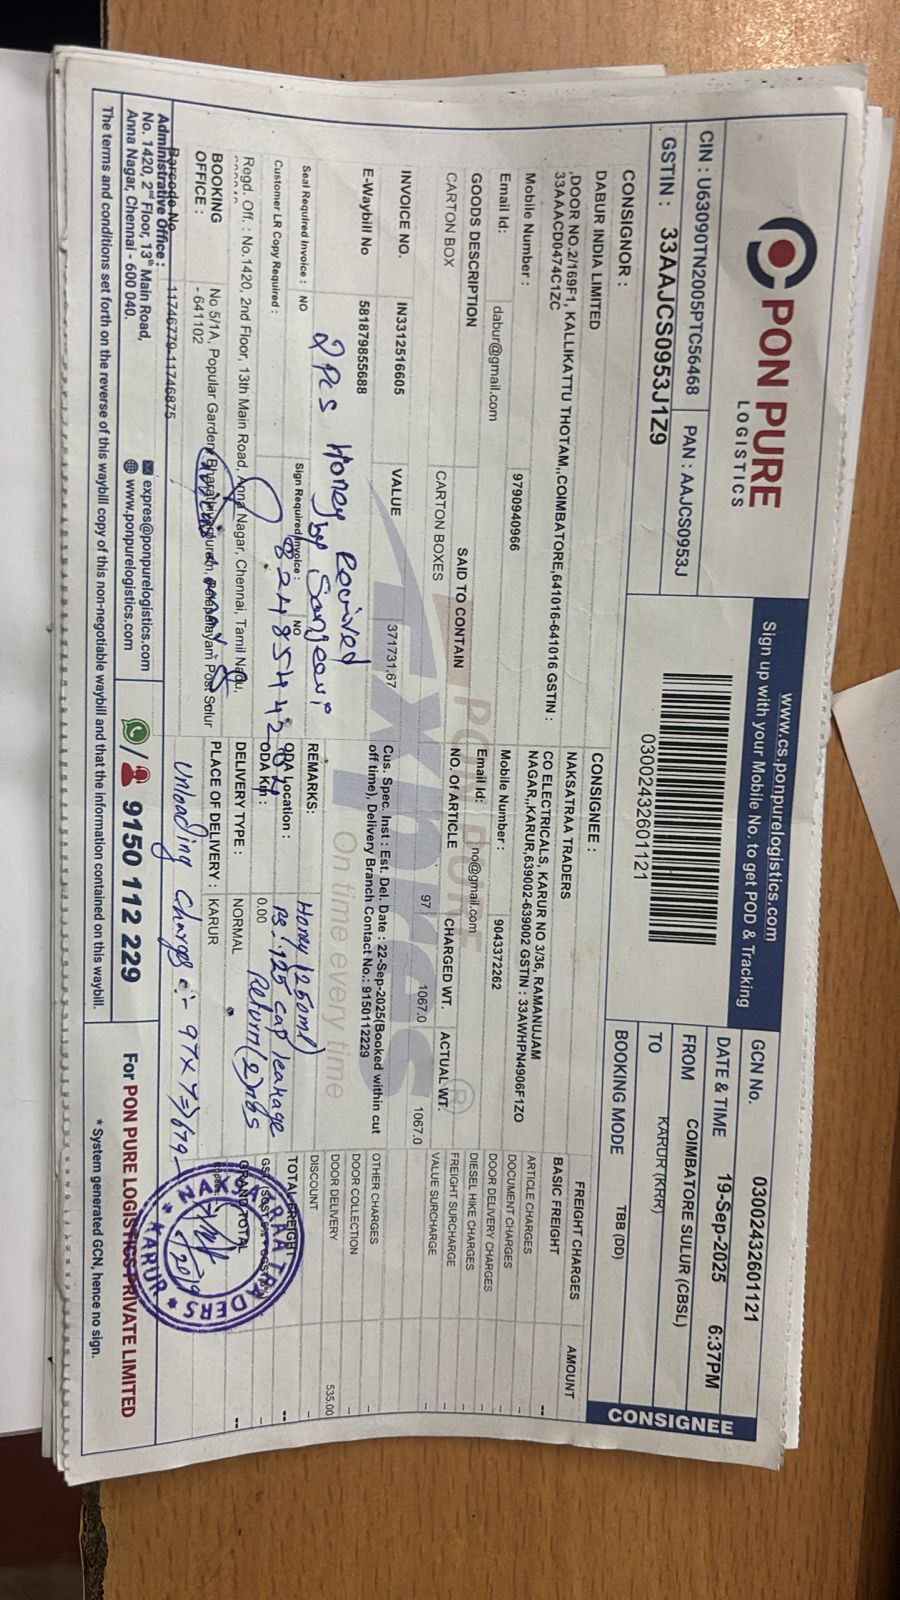 PON PURE
LOGISTICS
www.cs.ponpurelogistics.com
Sign up with your Mobile No. to get POD & Tracking
CIN : U63090TN2005PTC56468
PAN : AAJCS0953J
GSTIN : 33AAJCS0953J1Z9
03002432601121
GCN No. 03002432601121
DATE & TIME 19-Sep-2025 6:37PM
FROM COIMBATORE SULUR (CBSL)
TO KARUR (KRR)
BOOKING MODE TBB (DD)
CONSIGNEE
CONSIGNOR :
DABUR INDIA LIMITED
,DOOR NO.2/169F1, KALLIKATTU THOTAM,,COIMBATORE,641016-641016 GSTIN :
33AAACD0474C1ZC
Mobile Number : 9790940966
Email Id: dabur@gmail.com
CONSIGNEE :
NAKSATRAA TRADERS
CO ELECTRICALS, KARUR NO 3/36, RAMANUJAM
NAGAR,,KARUR,639002-639002 GSTIN : 33AWHPN4906F1ZO
Mobile Number : 9043372262
Email Id: no@gmail.com
GOODS DESCRIPTION SAID TO CONTAIN NO. OF ARTICLE CHARGED WT. ACTUAL WT.
CARTON BOX CARTON BOXES 97 1067.0 1067.0
INVOICE NO. IN3312516605 VALUE 371731.67
E-Waybill No 581879855688
Cus. Spec. Inst : Est. Del. Date : 22-Sep-2025(Booked within cut
off time), Delivery Branch Contact No.: 9150112229
PON PURE
Express
On time every time
®
FREIGHT CHARGES AMOUNT
BASIC FREIGHT --
ARTICLE CHARGES
DOCUMENT CHARGES
DOOR DELIVERY CHARGES
DIESEL HIKE CHARGES
FREIGHT SURCHARGE
VALUE SURCHARGE
OTHER CHARGES
DOOR COLLECTION
DOOR DELIVERY 535.00
DISCOUNT
TOTAL FREIGHT --
GRAND TOTAL --
2 Pcs Honey Received
by Sangeavi
8248544204
Seal Required Invoice : NO
Sign Required Invoice : NO
Customer LR Copy Required :
REMARKS:
Honey (250ml)
Ps. 125 cap leakage
Return (2) nos
ODA Location :
ODA Km : 0.00
DELIVERY TYPE : NORMAL
PLACE OF DELIVERY : KARUR
Regd. Off. : No.1420, 2nd Floor, 13th Main Road, Anna Nagar, Chennai, Tamil Nadu,
BOOKING OFFICE : No 5/1A, Popular Garden, Post Sulur
- 641102
Barcode No 11746779-11746875
Unloading charges :- 97x7=>679-
NAKSATRAA TRADERS
KARUR
Administrative Office :
No. 1420, 2nd Floor, 13th Main Road,
Anna Nagar, Chennai - 600 040.
expres@ponpurelogistics.com
www.ponpurelogistics.com
9150 112 229
For PON PURE LOGISTICS PRIVATE LIMITED
The terms and conditions set forth on the reverse of this waybill copy of this non-negotiable waybill and that the information contained on this waybill.
* System generated GCN, hence no sign.